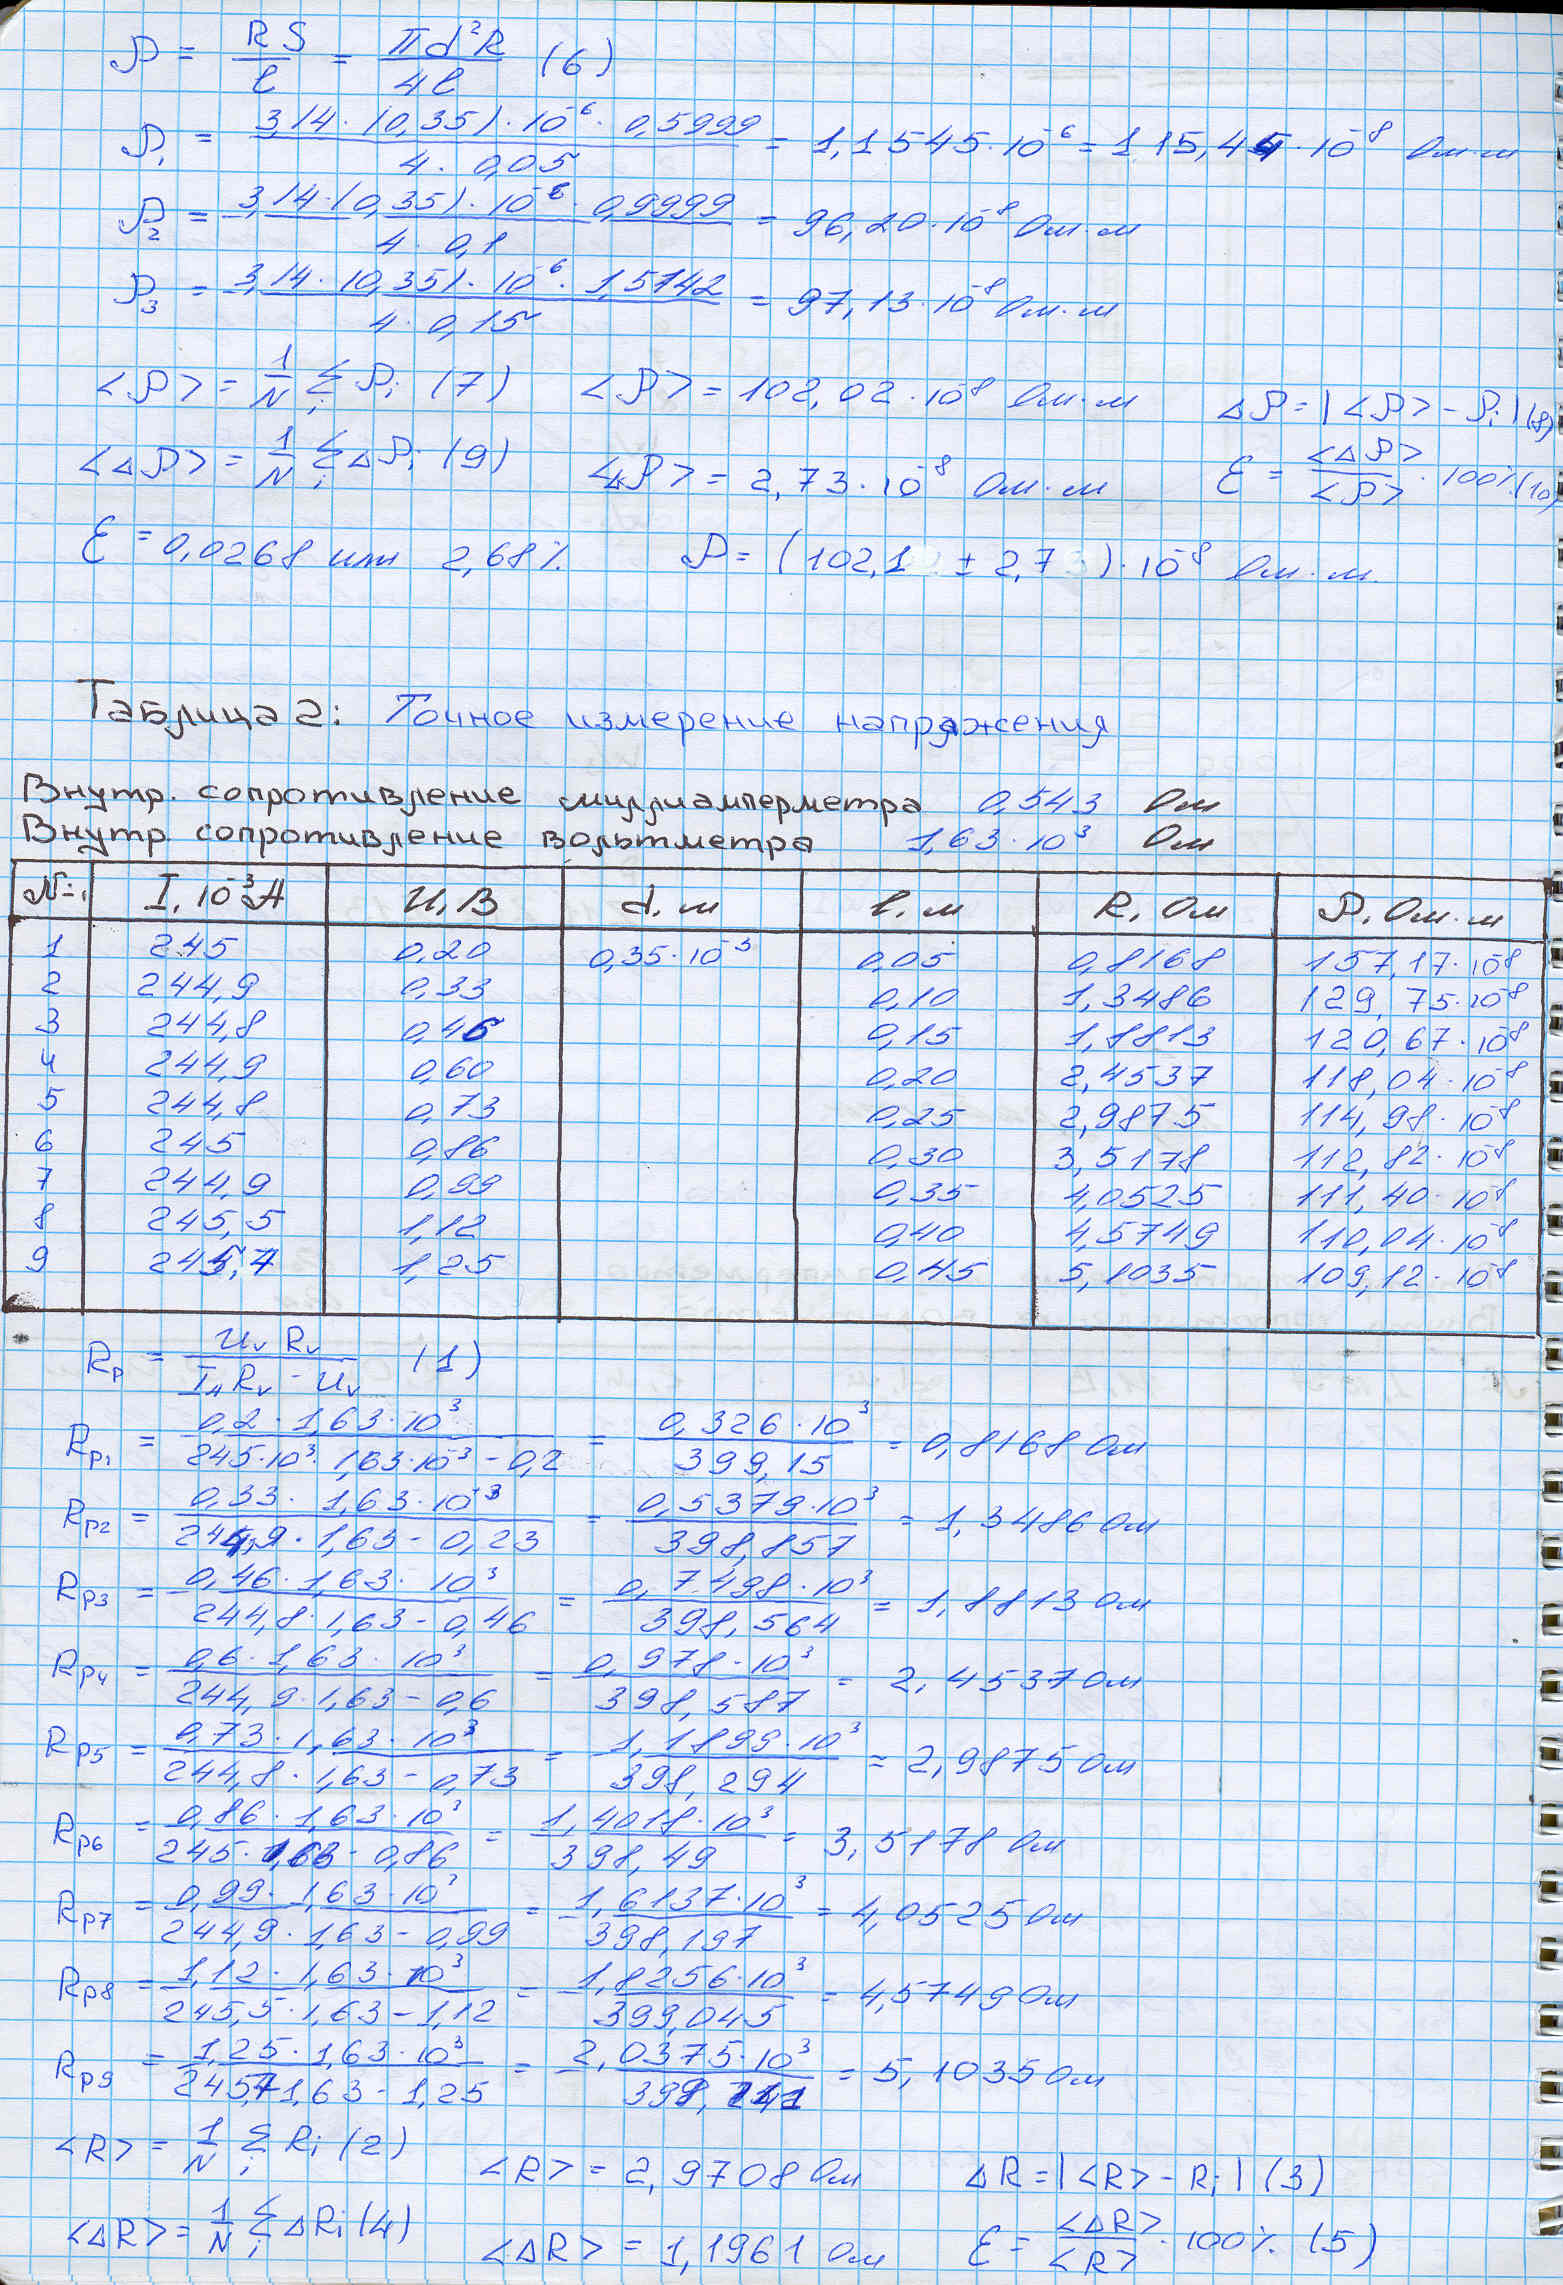 ρ = RS/ℓ = πd²R/4ℓ (6)
ρ₁ = 3,14·(0,35)·10⁻⁶·0,5999 / 4·0,05 = 1,1545·10⁻⁶ = 115,45·10⁻⁸ Ом·м
ρ₂ = 3,14·(0,35)·10⁻⁶·0,9999 / 4·0,1 = 96,20·10⁻⁸ Ом·м
ρ₃ = 3,14·(0,35)·10⁻⁶·1,5142 / 4·0,15 = 97,13·10⁻⁸ Ом·м
<ρ> = 1/N Σᵢ ρᵢ (7) <ρ> = 102,02·10⁻⁸ Ом·м Δρ = |<ρ> - ρᵢ| (8)
<Δρ> = 1/N Σᵢ Δρᵢ (9) <Δρ> = 2,73·10⁻⁸ Ом·м ℰ = <Δρ>/<ρ> · 100% (10)
ℰ = 0,0268 или 2,68% ρ = (102,1 ± 2,7)·10⁻⁸ Ом·м.
Таблица 2: Точное измерение напряжения
Внутр. сопротивление миллиамперметра 0,543 Ом
Внутр. сопротивление вольтметра 1,63·10³ Ом
№ I, 10⁻³A U, В d, м ℓ, м R, Ом ρ, Ом·м
1 245 0,20 0,35·10⁻³ 0,05 0,8168 157,17·10⁻⁸
2 244,9 0,33 0,10 1,3486 129,75·10⁻⁸
3 244,8 0,46 0,15 1,8813 120,67·10⁻⁸
4 244,9 0,60 0,20 2,4537 118,04·10⁻⁸
5 244,8 0,73 0,25 2,9875 114,98·10⁻⁸
6 245 0,86 0,30 3,5178 112,82·10⁻⁸
7 244,9 0,99 0,35 4,0525 111,40·10⁻⁸
8 245,5 1,12 0,40 4,5749 110,04·10⁻⁸
9 245,7 1,25 0,45 5,1035 109,12·10⁻⁸
Rp = Uv Rv / IA Rv - Uv (1)
Rp₁ = 0,2·1,63·10³ / 245·10³·1,63·10⁻³ - 0,2 = 0,326·10³ / 399,15 = 0,8168 Ом
Rp₂ = 0,33·1,63·10⁻³ / 244,9·1,63 - 0,23 = 0,5379·10³ / 398,857 = 1,3486 Ом
Rp₃ = 0,46·1,63·10³ / 244,8·1,63 - 0,46 = 0,7498·10³ / 398,564 = 1,8813 Ом
Rp₄ = 0,6·1,63·10³ / 244,9·1,63 - 0,6 = 0,978·10³ / 398,587 = 2,4537 Ом
Rp₅ = 0,73·1,63·10³ / 244,8·1,63 - 0,73 = 1,1899·10³ / 398,294 = 2,9875 Ом
Rp₆ = 0,86·1,63·10³ / 245·1,63 - 0,86 = 1,4018·10³ / 398,49 = 3,5178 Ом
Rp₇ = 0,99·1,63·10³ / 244,9·1,63 - 0,99 = 1,6137·10³ / 398,197 = 4,0525 Ом
Rp₈ = 1,12·1,63·10³ / 245,5·1,63 - 1,12 = 1,8256·10³ / 399,045 = 4,5749 Ом
Rp₉ = 1,25·1,63·10³ / 245,7·1,63 - 1,25 = 2,0375·10³ / = 5,1035 Ом
<R> = 1/N Σᵢ Rᵢ (2) <R> = 2,9708 Ом ΔR = |<R> - Rᵢ| (3)
<ΔR> = 1/N Σᵢ ΔRᵢ (4) <ΔR> = 1,1961 Ом ℰ = <ΔR>/<R> · 100% (5)